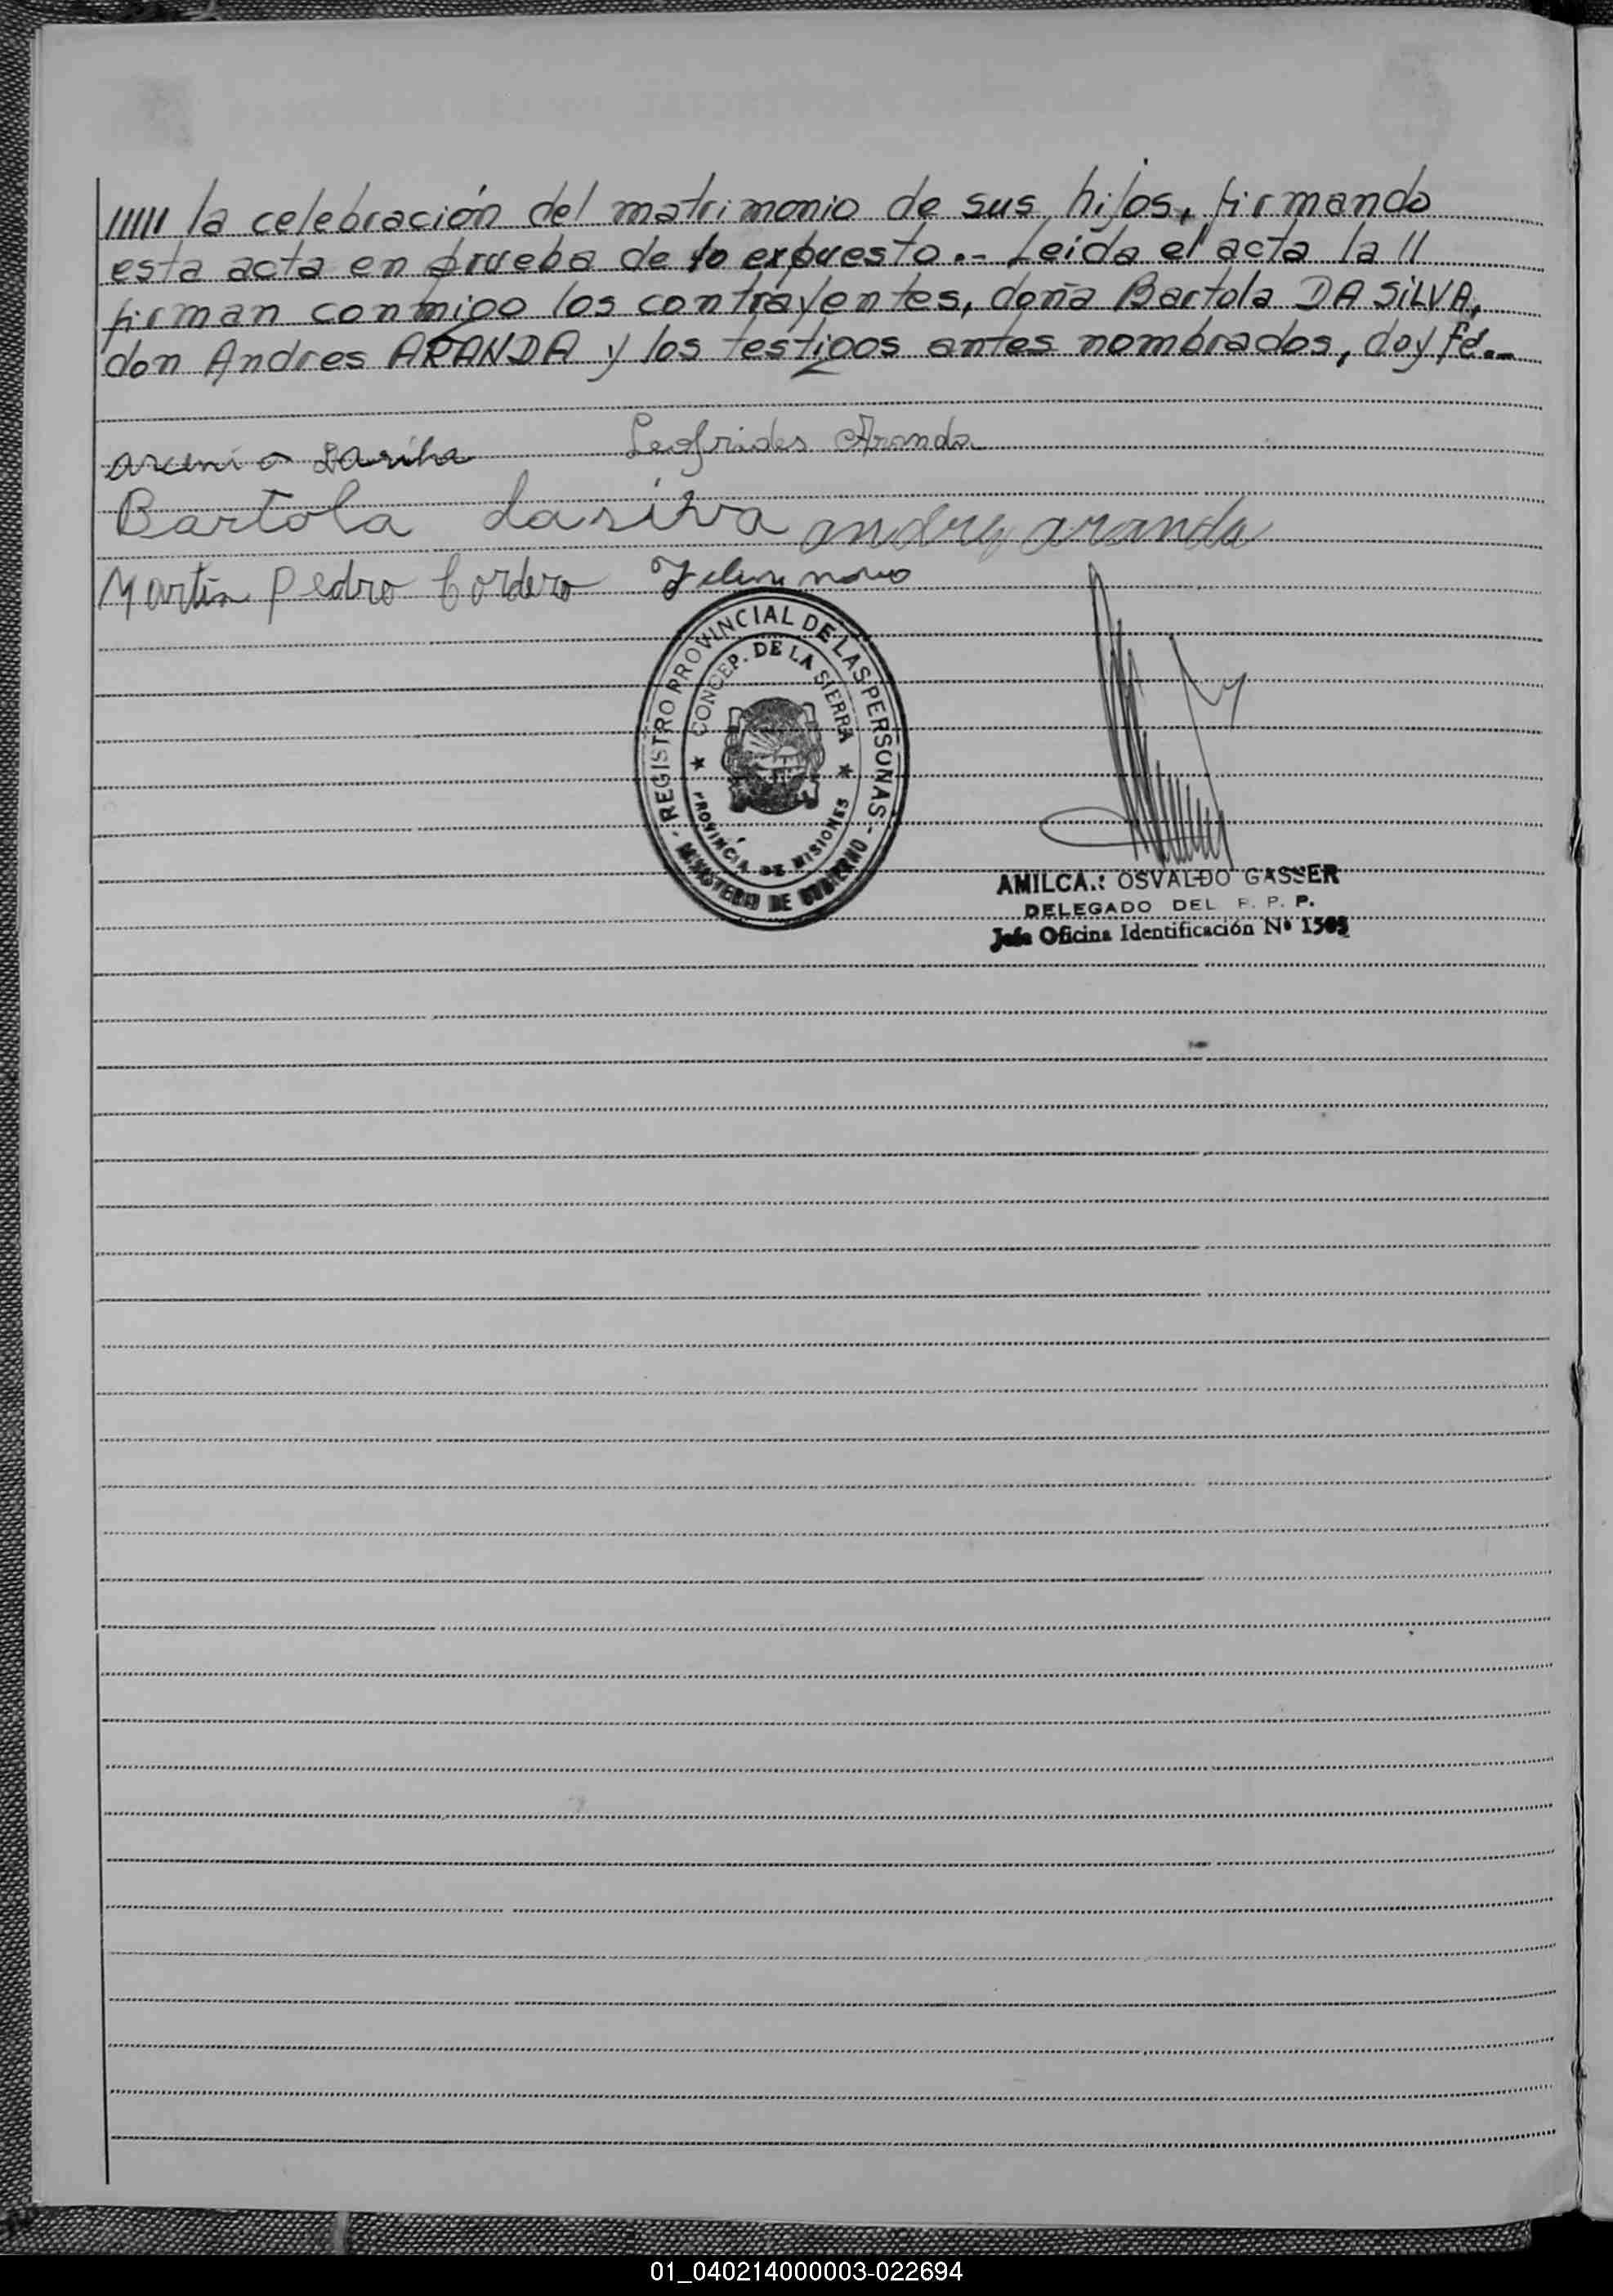 ///// la celebración del matrimonio de sus hijos, firmando
esta acta en prueba de lo expuesto.- Leida el acta la //
firman conmigo los contrayentes, doña Bartola DA SiLVA,
don Andres ARANDA y los testigos antes nombrados, doy fé.-
Leofrides Aranda
Bartola dasilva andres aranda
Martin Pedro Cordero
REGISTRO PROVINCIAL DE LAS PERSONAS
CONCEP. DE LA SIERRA
PROVINCIA DE MISIONES
MINISTERIO DE GOBIERNO
AMILCA.: OSVALDO GASSER
DELEGADO DEL P. P.
Jefe Oficina Identificación Nº
01_040214000003-022694